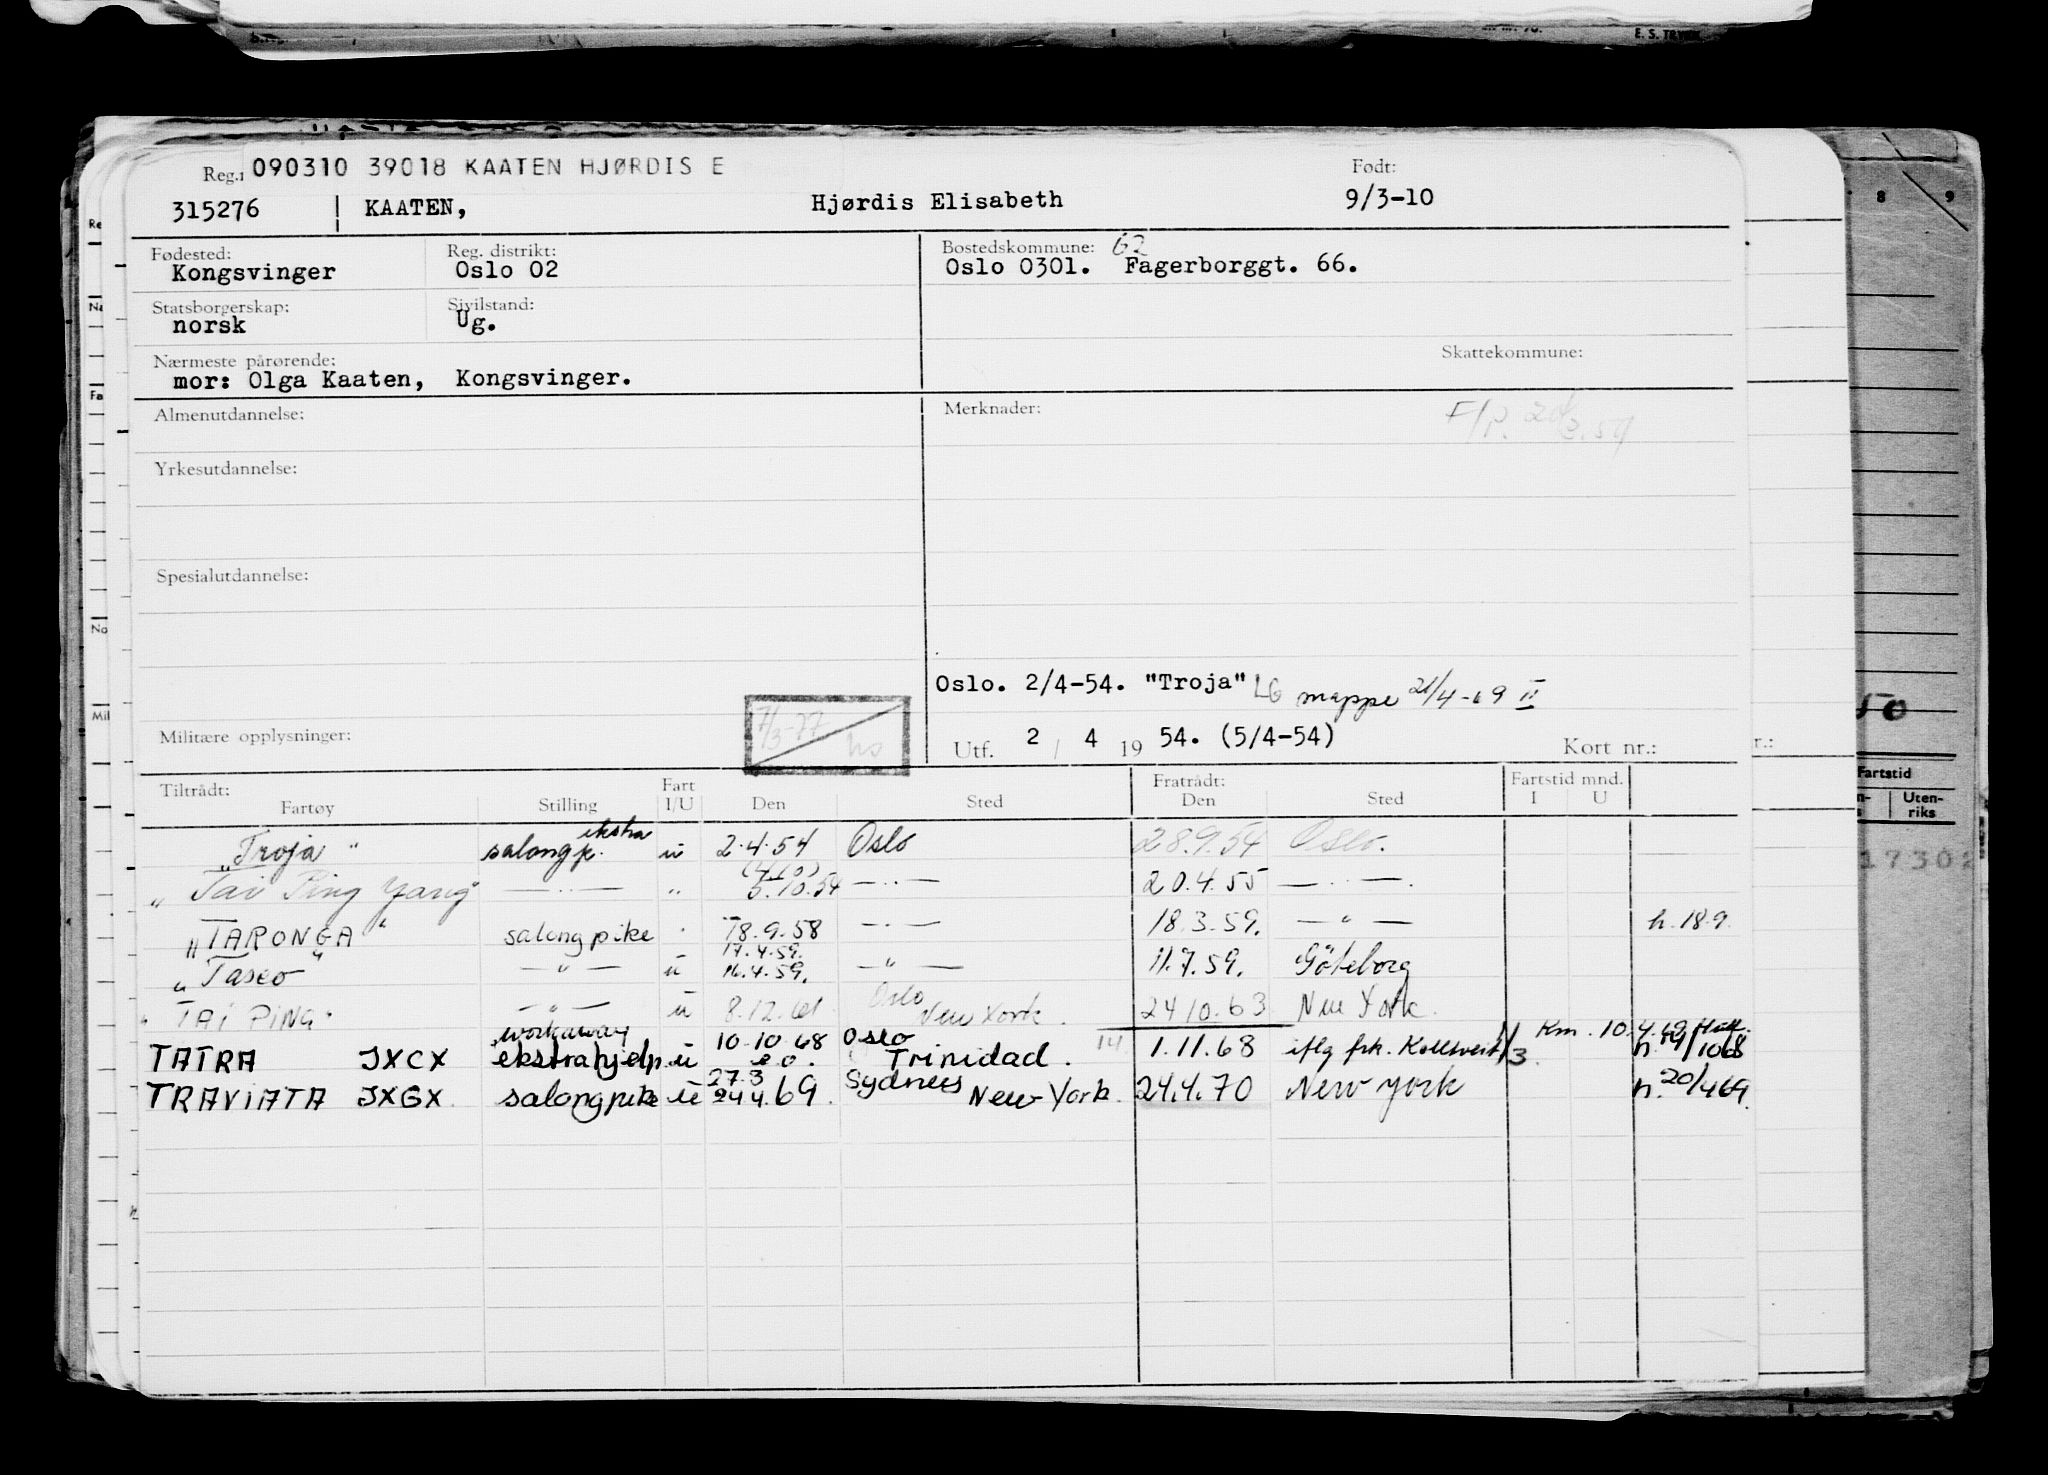 E. S. TAWN
Reg.: 090310 39018 KAATEN HJØRDIS E Født:
315276 KAATEN, Hjørdis Elisabeth 9/3-10
Fødested: Reg. distrikt: Bostedskommune: 62
Kongsvinger Oslo 02 Oslo 0301. Fagerborggt. 66.
Statsborgerskap: Sivilstand:
norsk Ug.
Nærmeste pårørende: Skattekommune:
mor: Olga Kaaten, Kongsvinger.
Almenutdannelse: Merknader: F/P.
Yrkesutdannelse:
Spesialutdannelse:
Oslo. 2/4-54. "Troja" LG mappe 21/4-69
Militære opplysninger: 7/3-77 Utf. 2 / 4 19 54. (5/4-54) Kort nr.:
Tiltrådt: Fartøy Stilling Fart I/U Den Sted Fratrådt: Den Sted Fartstid mnd. I U
"Troja" salongp. ekstra u 2.4.54 Oslo 28.9.54 Oslo.
"Tai Ping Yang" — " — " 5.10.54 — " — 20.4.55 — " —.
"TARONGA" salongpike 18.9.58 — " — 18.3.59. — " — h. 18.9.
17.4.59.
"Tasco" — " — u 16.4.59. — " — 11.7.59. Göteborg
"TAI PING" — " — u 8.12.61 Oslo New York. 24.10.63 New York.
workaway 10.10.68 Oslo 14. Km. 10.4.69
TATRA JXCX ekstrahjelp u Trinidad. 1.11.68 iflg frk. Kollsveit
27.3 Sydney
TRAVIATA JXGX. salongpike u 24.4.69. New York. 24.4.70 New York h. 20/4 69.
8 9
50
Fartstid
Uten-
riks
17302